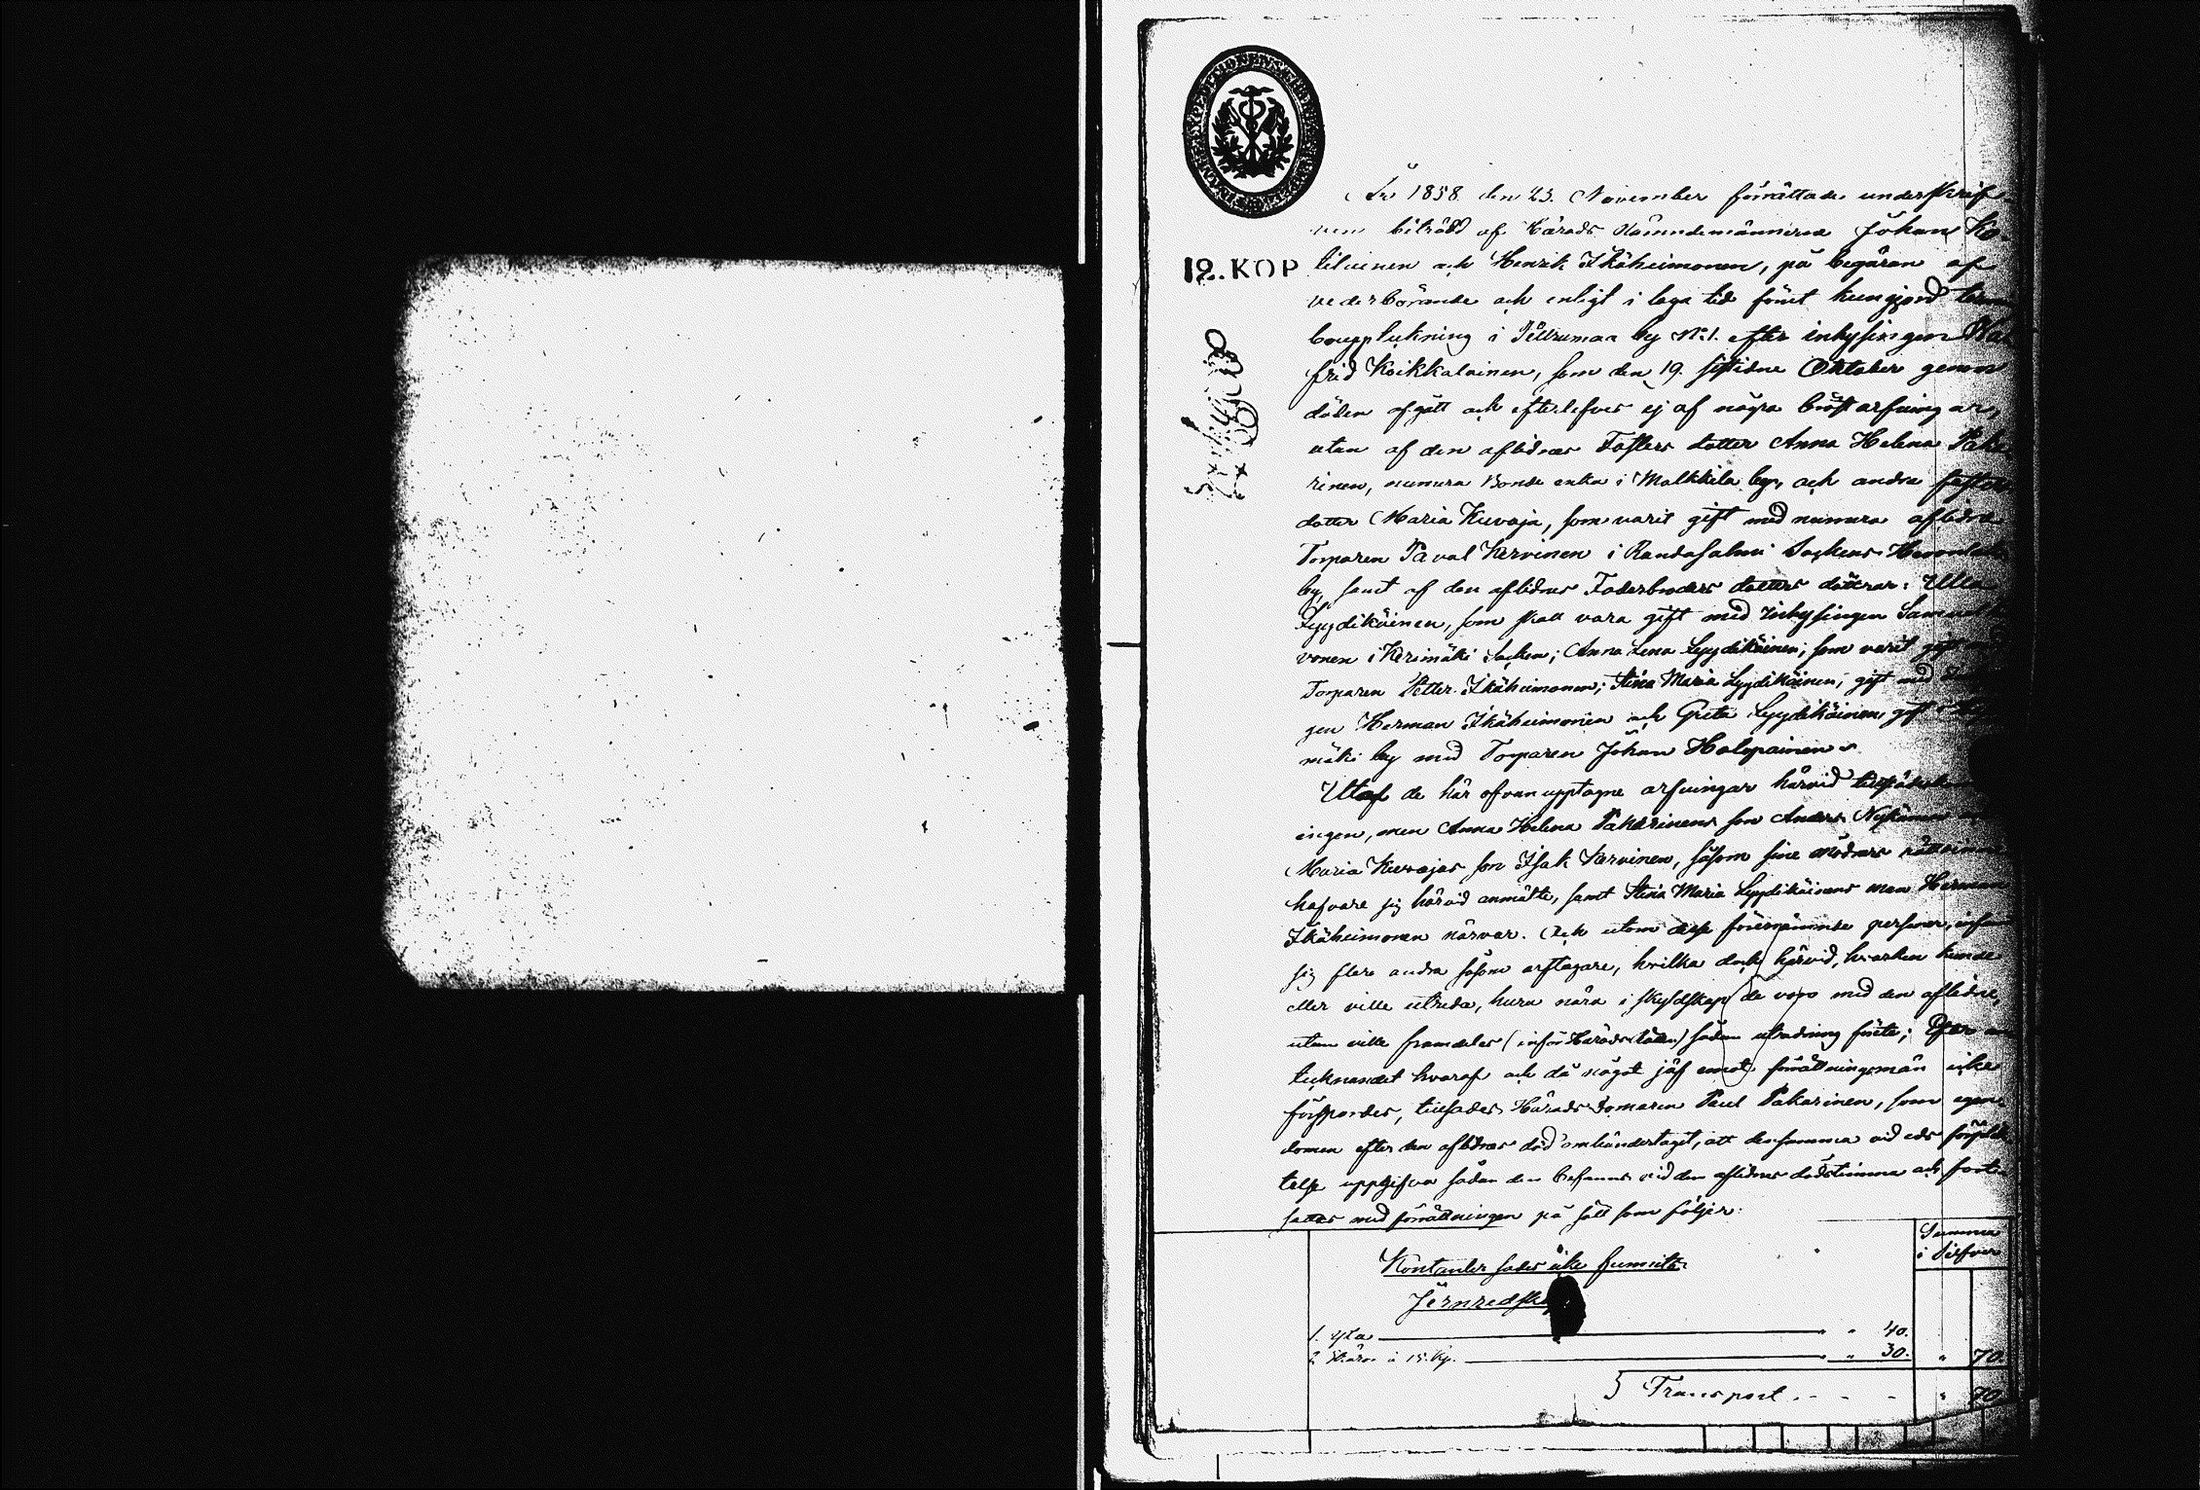 År 1858 den 23. November förrättade underskrif-
ven biträdd af Härads Nämndemännerne Johan Ko-
12. KOP
tilainen och Henrik Ikäheimonen, på begäran af
vederbörande och enligt i laga tid förut kungjord
bouppteckning i by N:o 1. efter inhysingen
frid Koikkalainen, som den 19. sistledne Oktober genom
döden afgått och efterlefves ej af några bröstarfvingar,
utan af den aflidnes Fasters dotter Anna Helena Paka-
rinen, numera Bonde enka i Malkkila by, och andra faster
dotter Maria Kuvaja, som varit gift med numera aflidne
Torparen Paval Karvinen i Randasalmi Sockens
by, samt af den aflidnes Faderbroders dotters döttrar: Ulla
Lyydikäinen, som skall vara gift med Inhysingen Samuel
vonen i Kerimäki Socken; Anna Lena Lyydikäinen, som varit gift med
Torparen Petter Ikäheimonen; Stina Maria Lyydikäinen, gift med
gen Herman Ikäheimonen och Greta Lyydikäinen, gift i
mäki by med Torparen Johan Holopainen.
Utaf de här ofvan upptagne arfvingar härvid
ingen, men Anna Helena Pakarinens son Anders Nykänen
Maria Kuvajas son Isak Karvinen, såsom sine mödrars
hafvare sig härvid anmälte, samt Stina Maria Lyydikäinens man Herman
Ikäheimonen närvar. Och utom desse förenämnde personer,
sig flere andra såsom arftagare, hvilka dock härvid, hvarken kunde
eller ville utreda, huru nära i skyldskap de voro med den aflidne,
utan ville framdeles (inför Härads Rätten) sådan utredning förete; Efter an-
tecknandet hvaraf och då något jäf emot förrättningsmän icke
försporder, tillsades Härads Domaren Paul Pakarinen, som egen-
domen efter den aflidnes död omhändertagit, att densamma vid eds förplik-
telse uppgifva sådan den befanns vid den aflidnes dödstimma och fort-
sattes med förrättningen på sätt som följer:
Summa
i Silfver
Kontanter sades icke funnits
Jernredska
1. yxa " 40.
2. Skäror à 15. kp. " 30. " 70.
Transport " 70